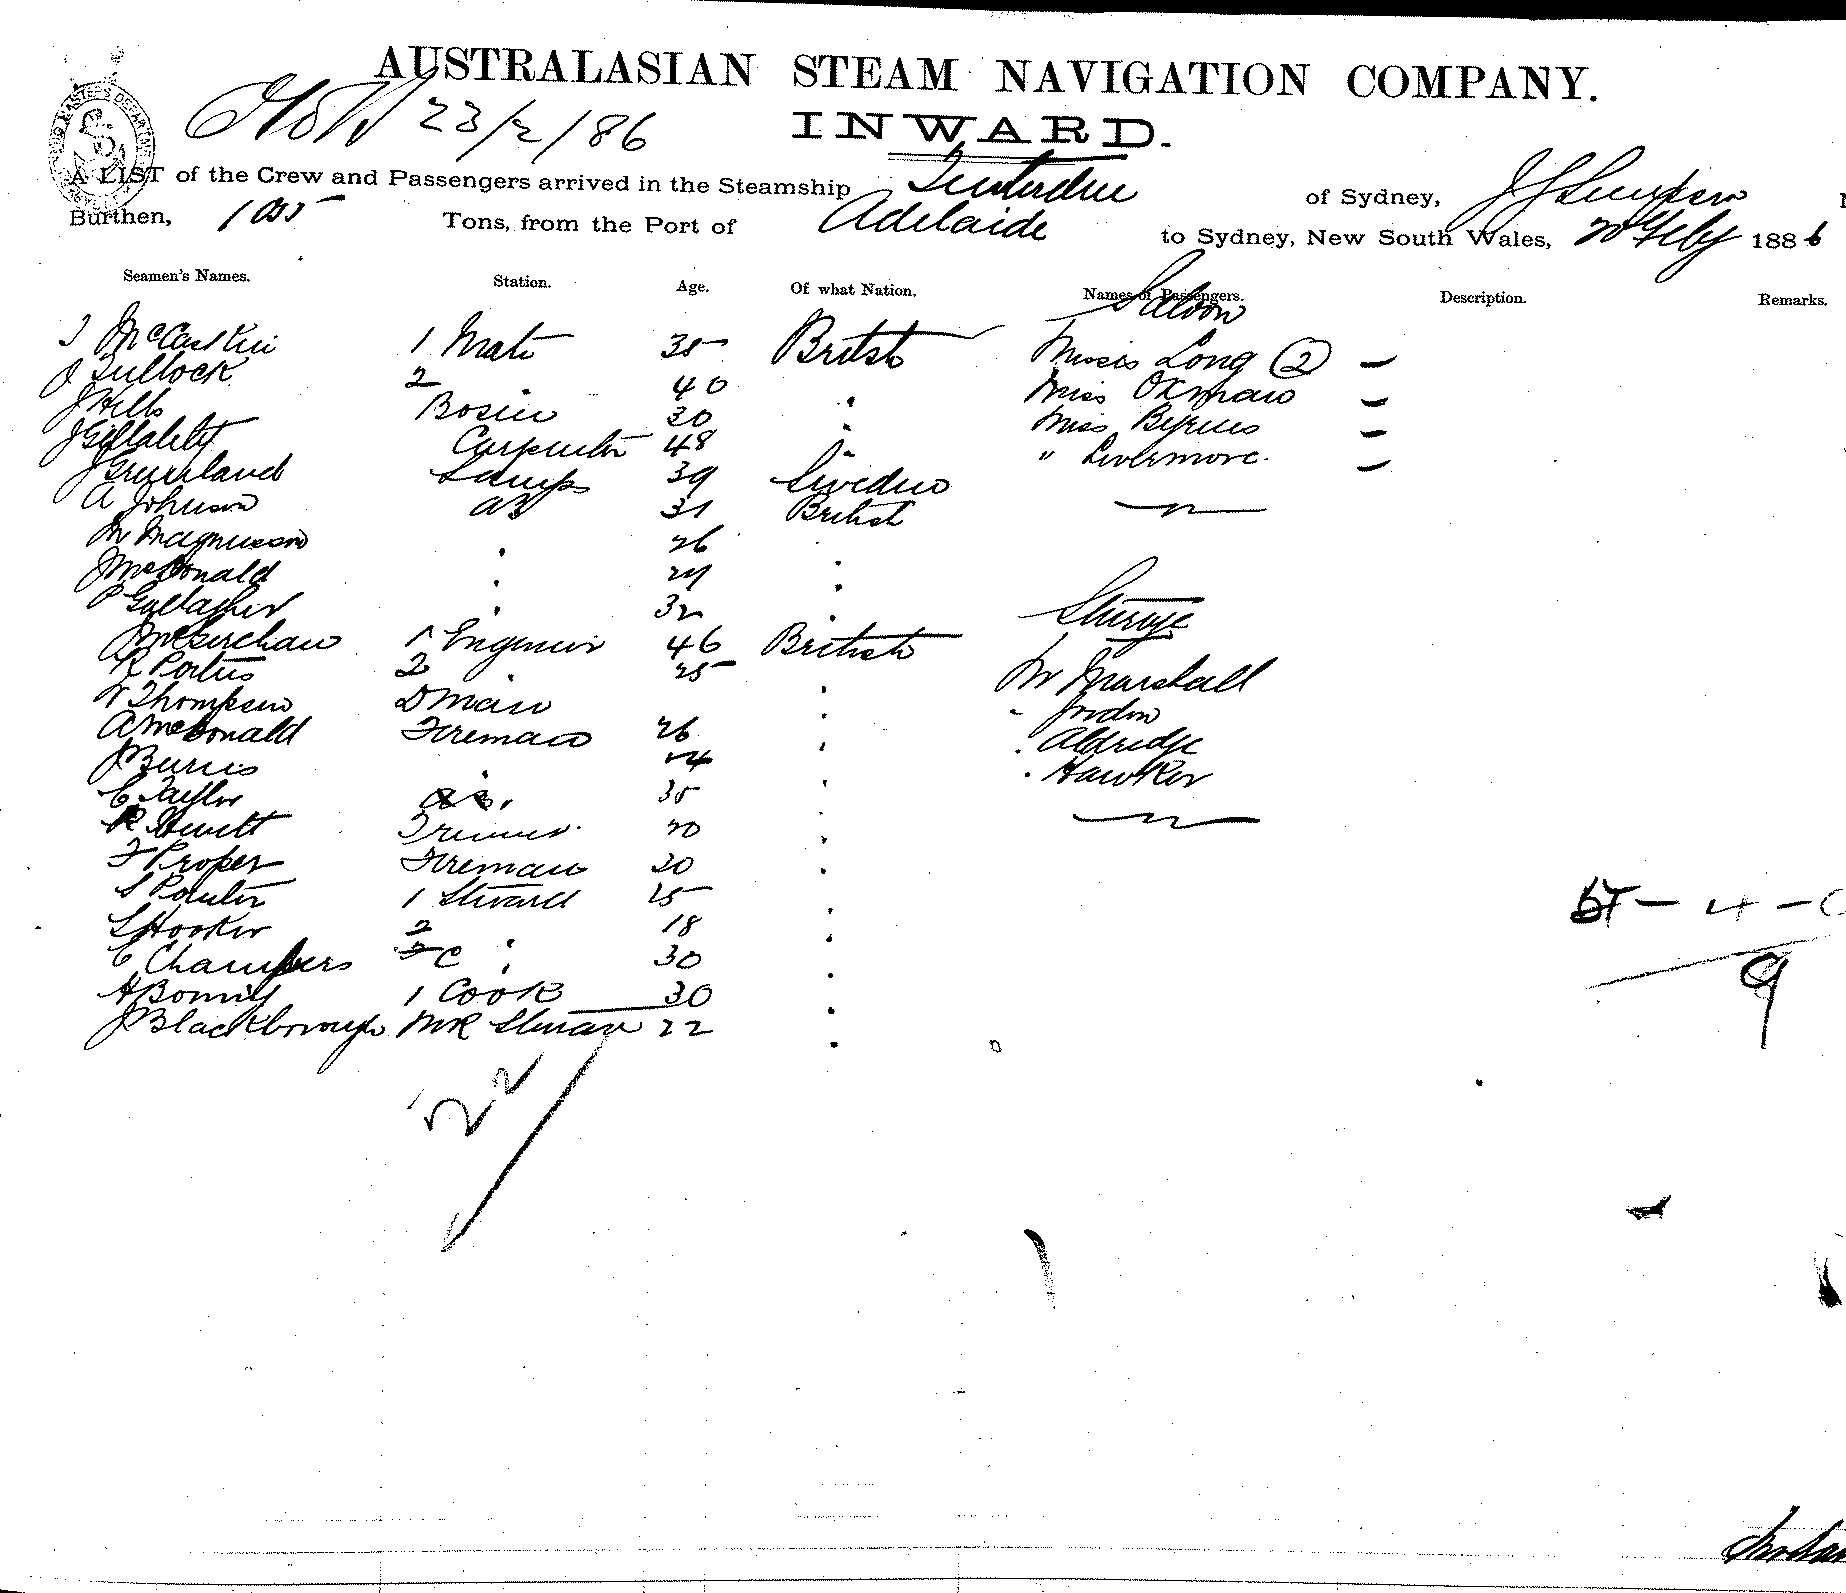 AUSTRALASIAN STEAM NAVIGATION COMPANY.
23/2/86 INWARD.
A LIST of the Crew and Passengers arrived in the Steamship
of Sydney,
Burthen, Tons, from the Port of Adelaide to Sydney, New South Wales, 20 Feby 1886
Seamen's Names. Station. Age. Of what Nation. Names of Passengers. Description. Remarks.
Saloon
1 Mate 35 British Misses Long (2) —
J Bullock 2 40 " Miss Oxman —
J Hills Bosun 30 " Miss Byrnes —
Carpenter 48 " " Livermore. —
J Greenland Lamps 39 Sweden
A Johnson AB 31 British
M Magnusson " 26 "
J McDonald " "
P Gallagher " 32 "
Steerage
1 Engineer 46 British
R Porteus 2 " 25 " Mr Marshall
W Thompson D man " " Jordon
A McDonald Fireman 26 " " Aldridge
J Burns " 24 " " Hawker
C Taylor 35 "
R Hewitt Trimmer 20 "
F Proper Fireman 30 "
S Poulter 1 Steward 25 "
S Hooker 2 " 18 "
C Chambers C " 30 "
1 Cook 30 "
J Blackborough 22 "
4
9
22